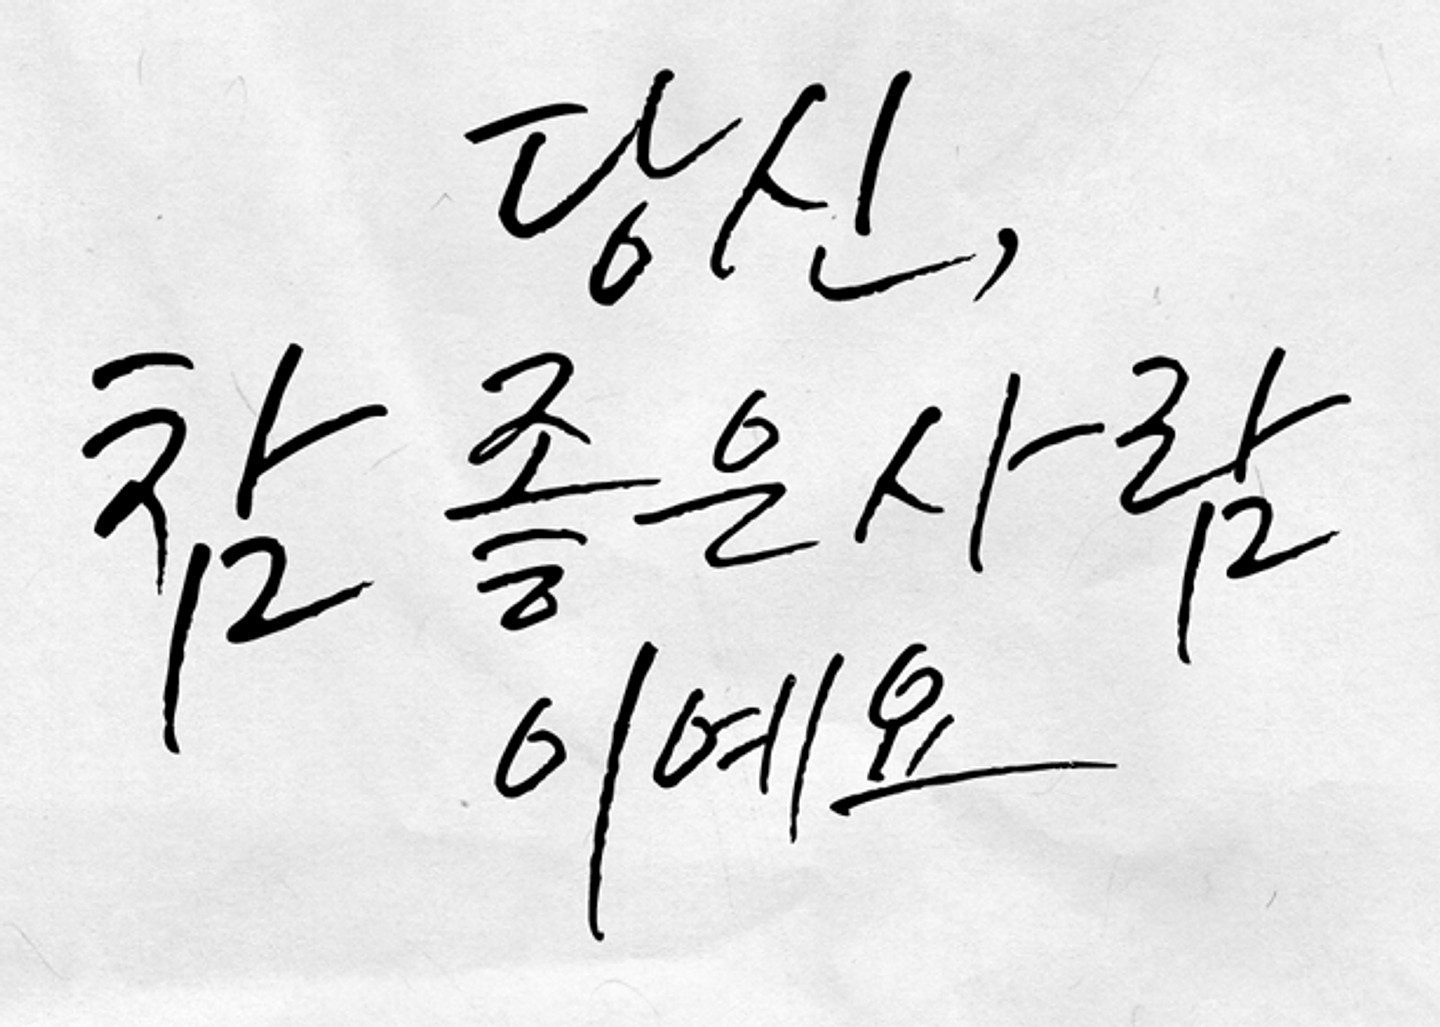 당신,
참 좋은 사람
이예요